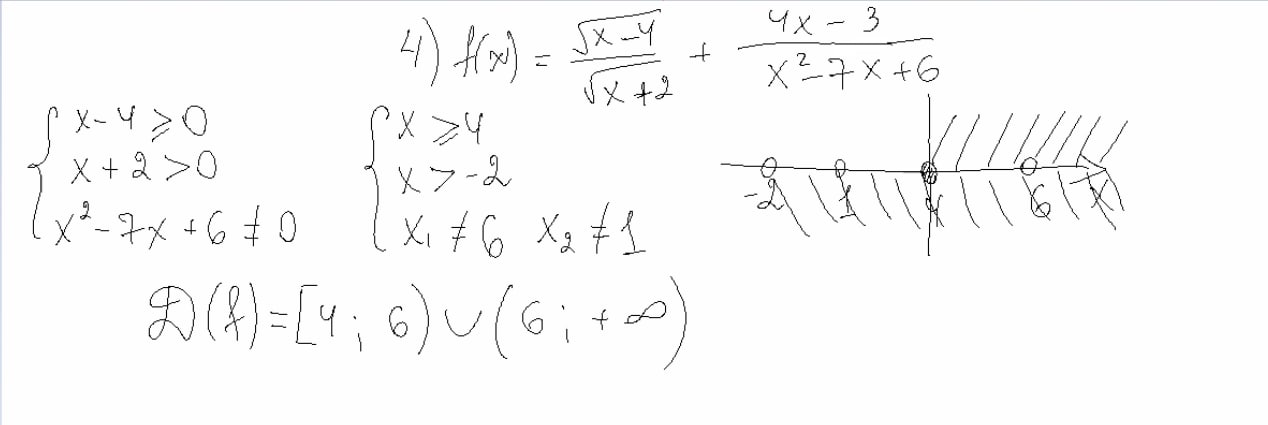 4) f(x) = √x-4 / √x+2 + 4x-3 / x²-7x+6
{ x-4 ⩾ 0
x+2 > 0
x²-7x+6 ≠ 0
{ x ⩾ 4
x > -2
x₁ ≠ 6 x₂ ≠ 1
-2 1 4 6 x
D(f) = [4; 6) ∪ (6; +∞)